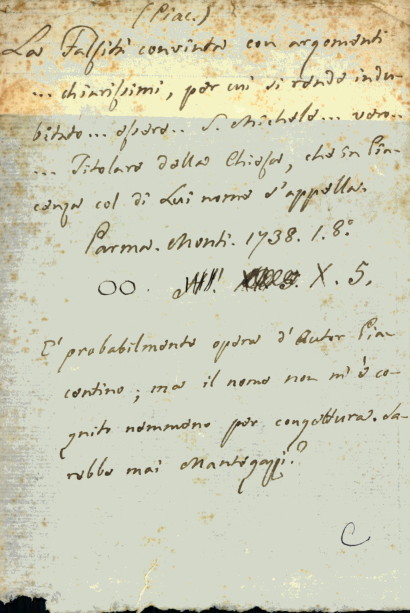 (Piac.)
La Falsità convinta con argomenti
... chiarissimi, per cui si rende indu-
bitato... essere.. S. Michele... vero..
... Titolare della Chiesa, che in Pia-
cenza col di Lui nome s'appella.
Parma. Monti. 1738. 1. 8°
OO. X. 5.
E' probabilmente opera d'Autor Pia-
centino; ma il nome non m'è co-
gnito nemmeno per congettura. Sa-
rebbe mai Mantegazzi?
C